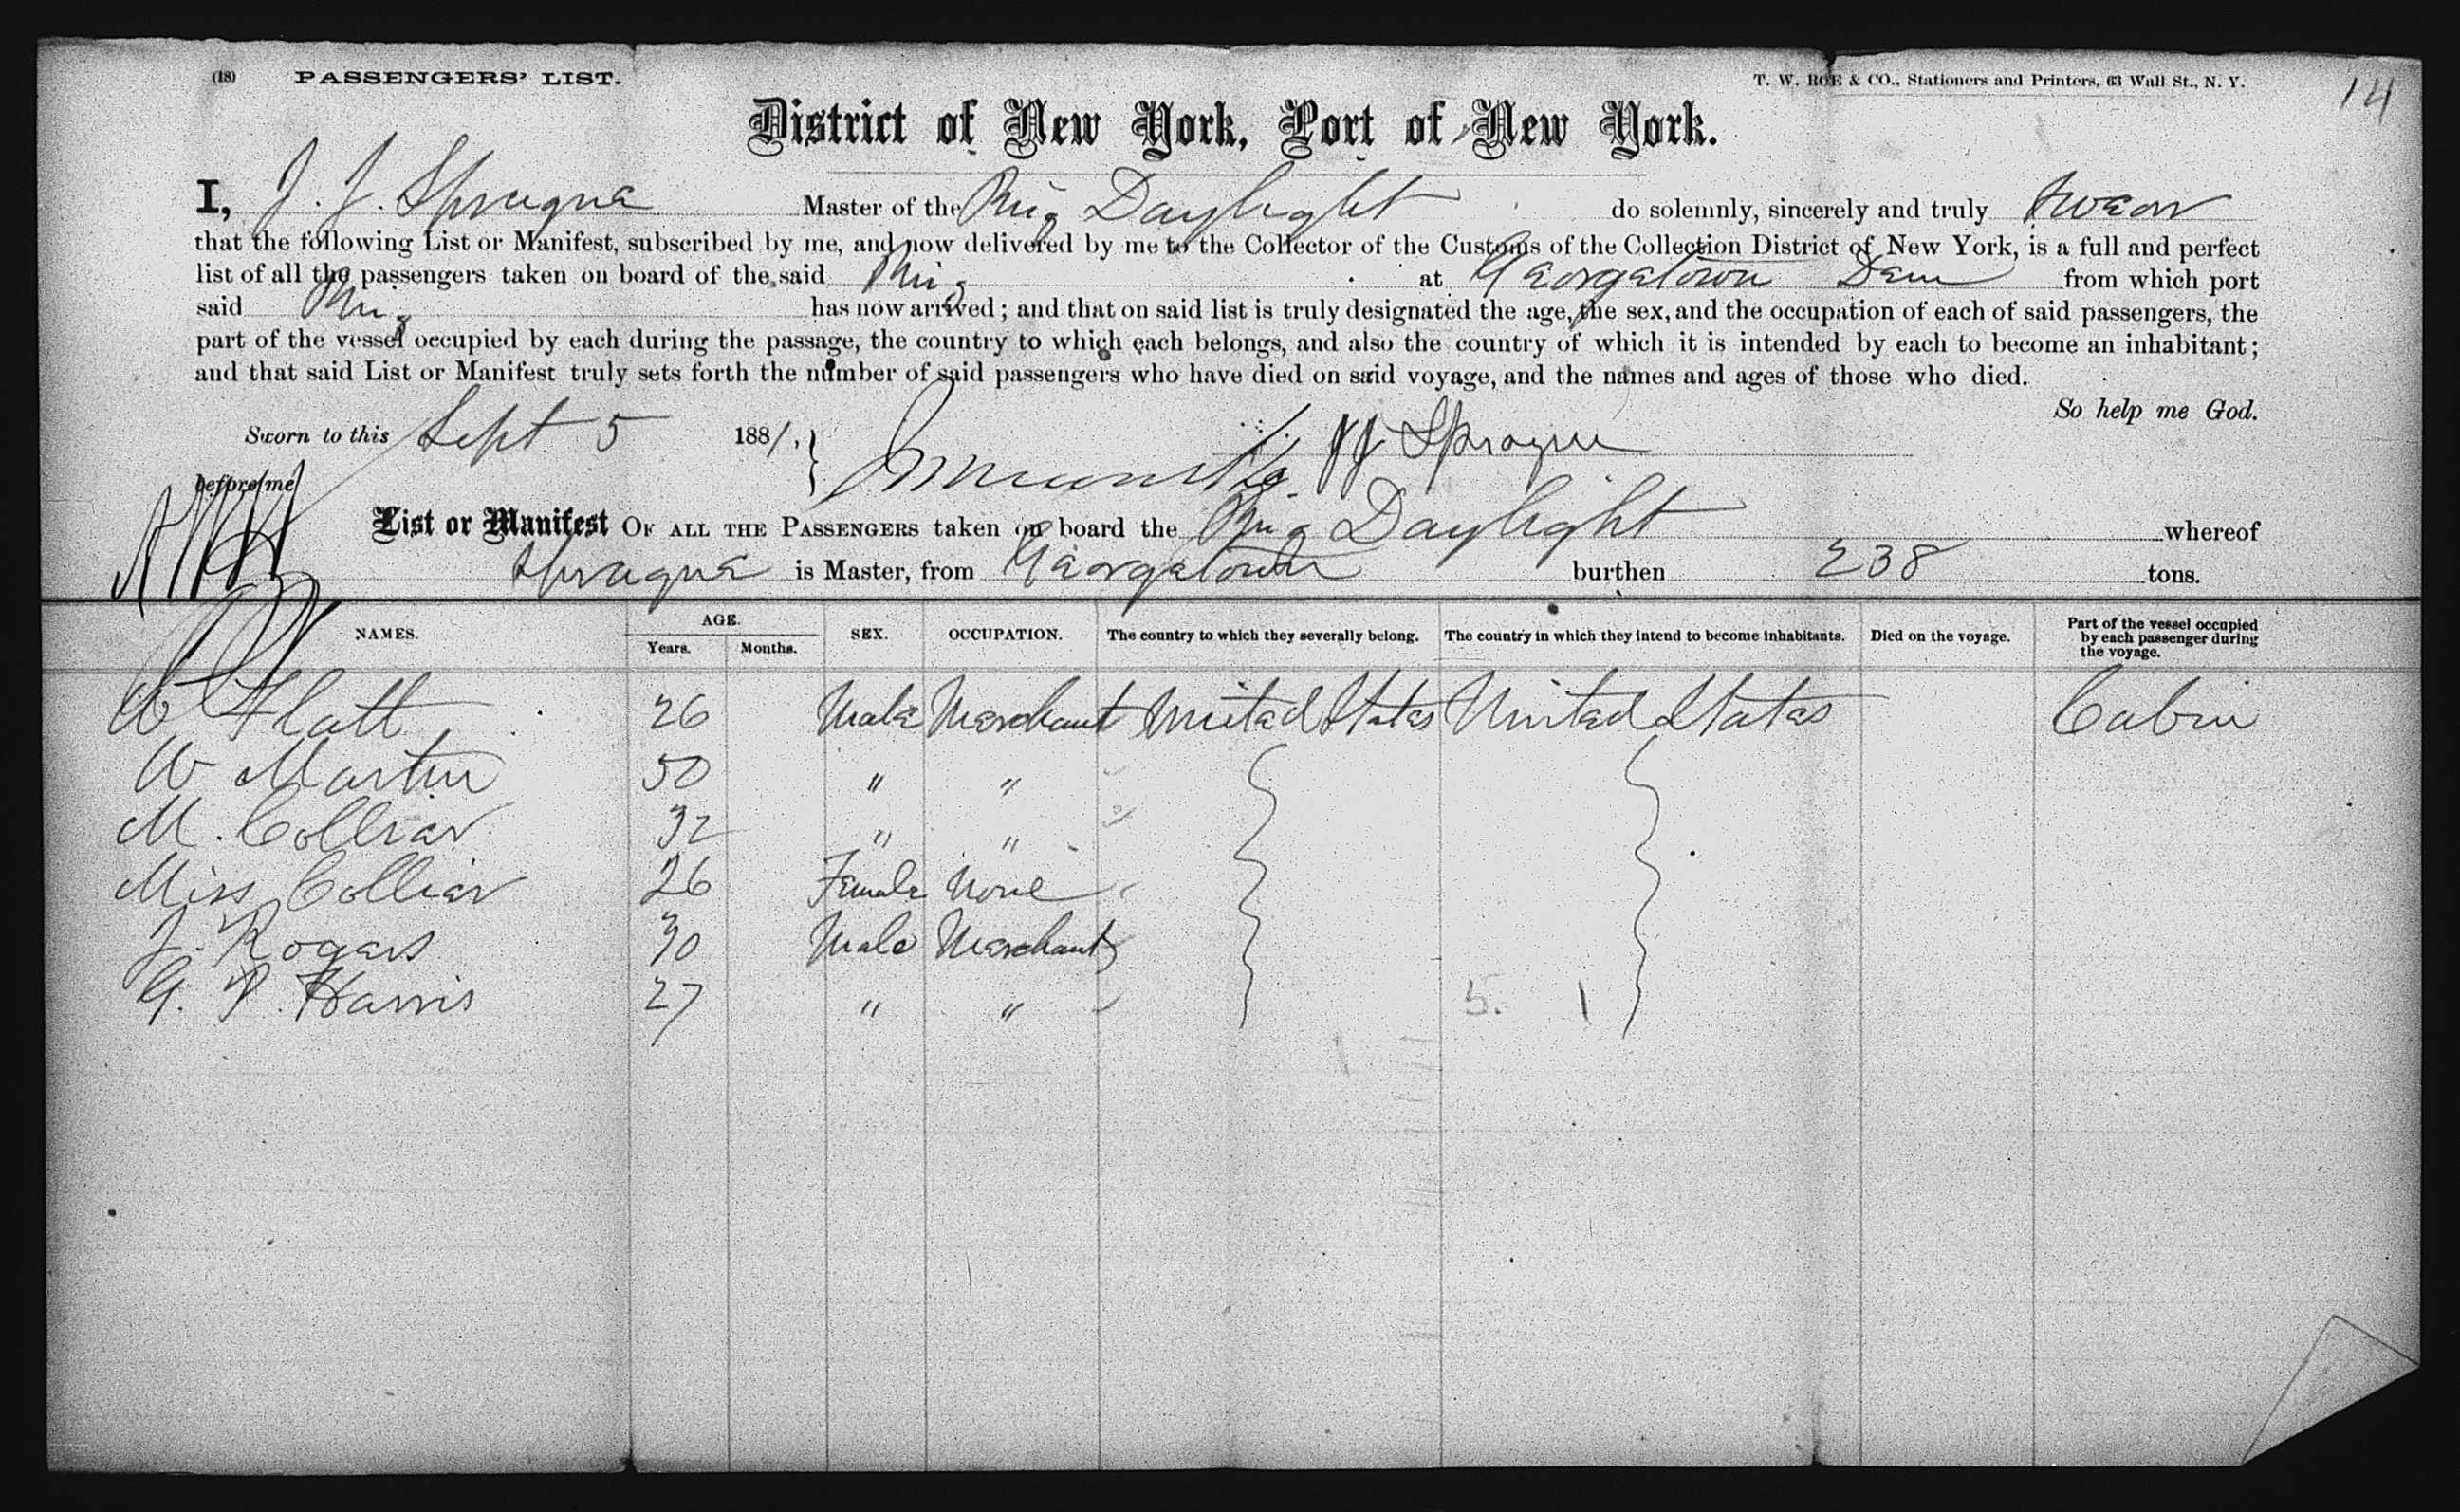 (18) PASSENGERS' LIST. T. W. ROE & CO., Stationers and Printers, 63 Wall St., N. Y. 14
District of New York, Port of New York.
I, J. J. Sprague Master of the Brig Daylight do solemnly, sincerely and truly swear
that the following List or Manifest, subscribed by me, and now delivered by me to the Collector of the Customs of the Collection District of New York, is a full and perfect
list of all the passengers taken on board of the said Brig at Georgetown Dem from which port
said Brig has now arrived; and that on said list is truly designated the age, the sex, and the occupation of each of said passengers, the
part of the vessel occupied by each during the passage, the country to which each belongs, and also the country of which it is intended by each to become an inhabitant;
and that said List or Manifest truly sets forth the number of said passengers who have died on said voyage, and the names and ages of those who died.
So help me God.
Sworn to this Sept 5 1881. J J Sprague
before me
List or Manifest OF ALL THE PASSENGERS taken on board the Brig Daylight whereof
Sprague is Master, from Georgetown burthen 238 tons.
NAMES. AGE. Years. Months. SEX. OCCUPATION. The country to which they severally belong. The country in which they intend to become inhabitants. Died on the voyage. Part of the vessel occupied by each passenger during the voyage.
W Flatt 26 Male Merchant United States United States Cabin
W Martin 50 " "
M. Collier 32 " "
Miss Collier 26 Female None
J. Rogers 30 Male Merchant
G. P. Harris 27 " " 5. 1